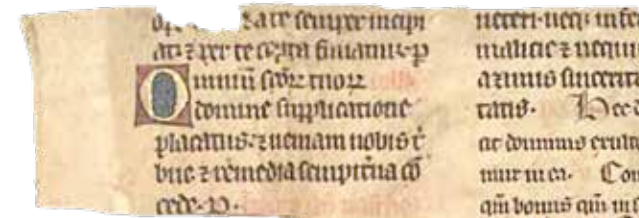 are semper incipi
at: ⁊ per te cepta finiatur. p
Omniū scōꝝ tuoꝝ
domine supplicatione
placatus: ⁊ ueniam nobis t̄
bue ⁊ remedia sempit̄na cō
cede. p.
neteri. neqꝫ in fe
malicie ⁊ nequi
azimis sincerita
tatis. Hec
at dominus exulte
mur in ea. Con
qm̄ bonus qm̄ in